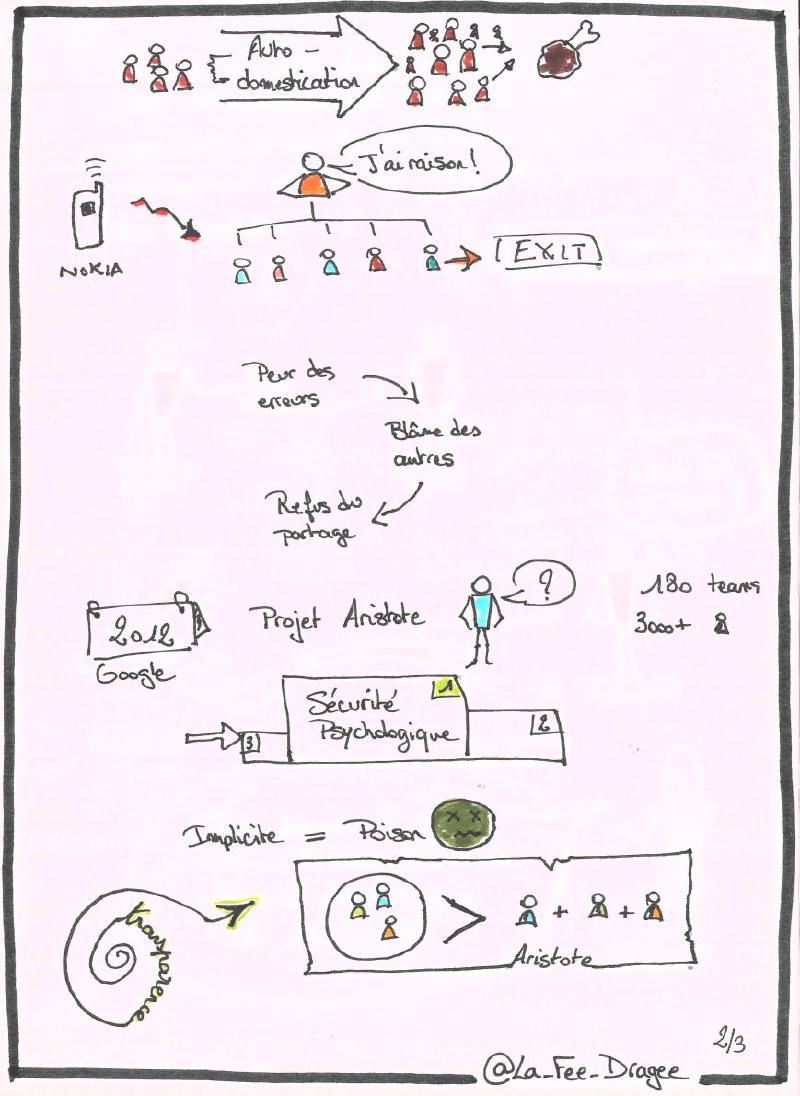 Auto-
domestication
J'ai raison!
NOKIA
EXIT
Peur des
erreurs
Blâme des
autres
Refus du
partage
2012
Google
Projet Aristote
?
180 teams
3000+
Sécurité
Psychologique
1
2
3
Implicite = Poison
transparence
> + +
Aristote
2/3
@La_Fee_Dragee